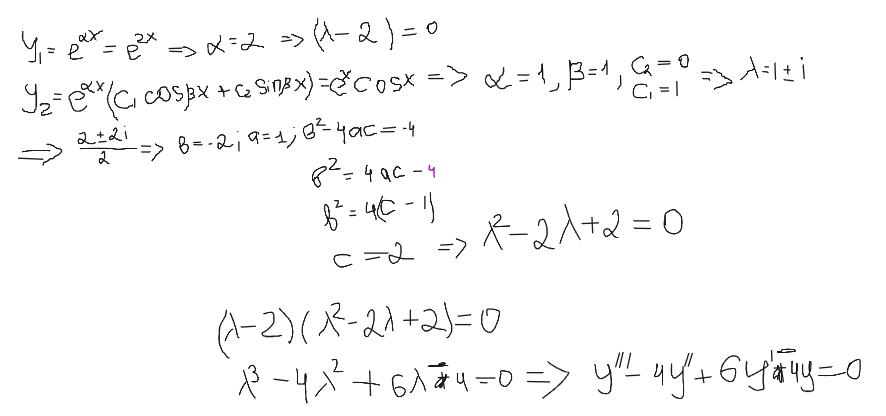 y₁ = e^{αx} = e^{2x} => α = 2 => (λ - 2) = 0
y₂ = e^{αx}(C₁ cosβx + C₂ sinβx) = e^x cosx => α = 1, β = 1, C₂ = 0 C₁ = 1 => λ = 1 ± i
=> (2 ± 2i)/2 => b = -2; a = 1; b² - 4ac = -4
b² = 4ac - 4
b² = 4(c - 1)
c = 2 => λ² - 2λ + 2 = 0
(λ - 2)(λ² - 2λ + 2) = 0
λ³ - 4λ² + 6λ - 4 = 0 => y''' - 4y'' + 6y' - 4y = 0